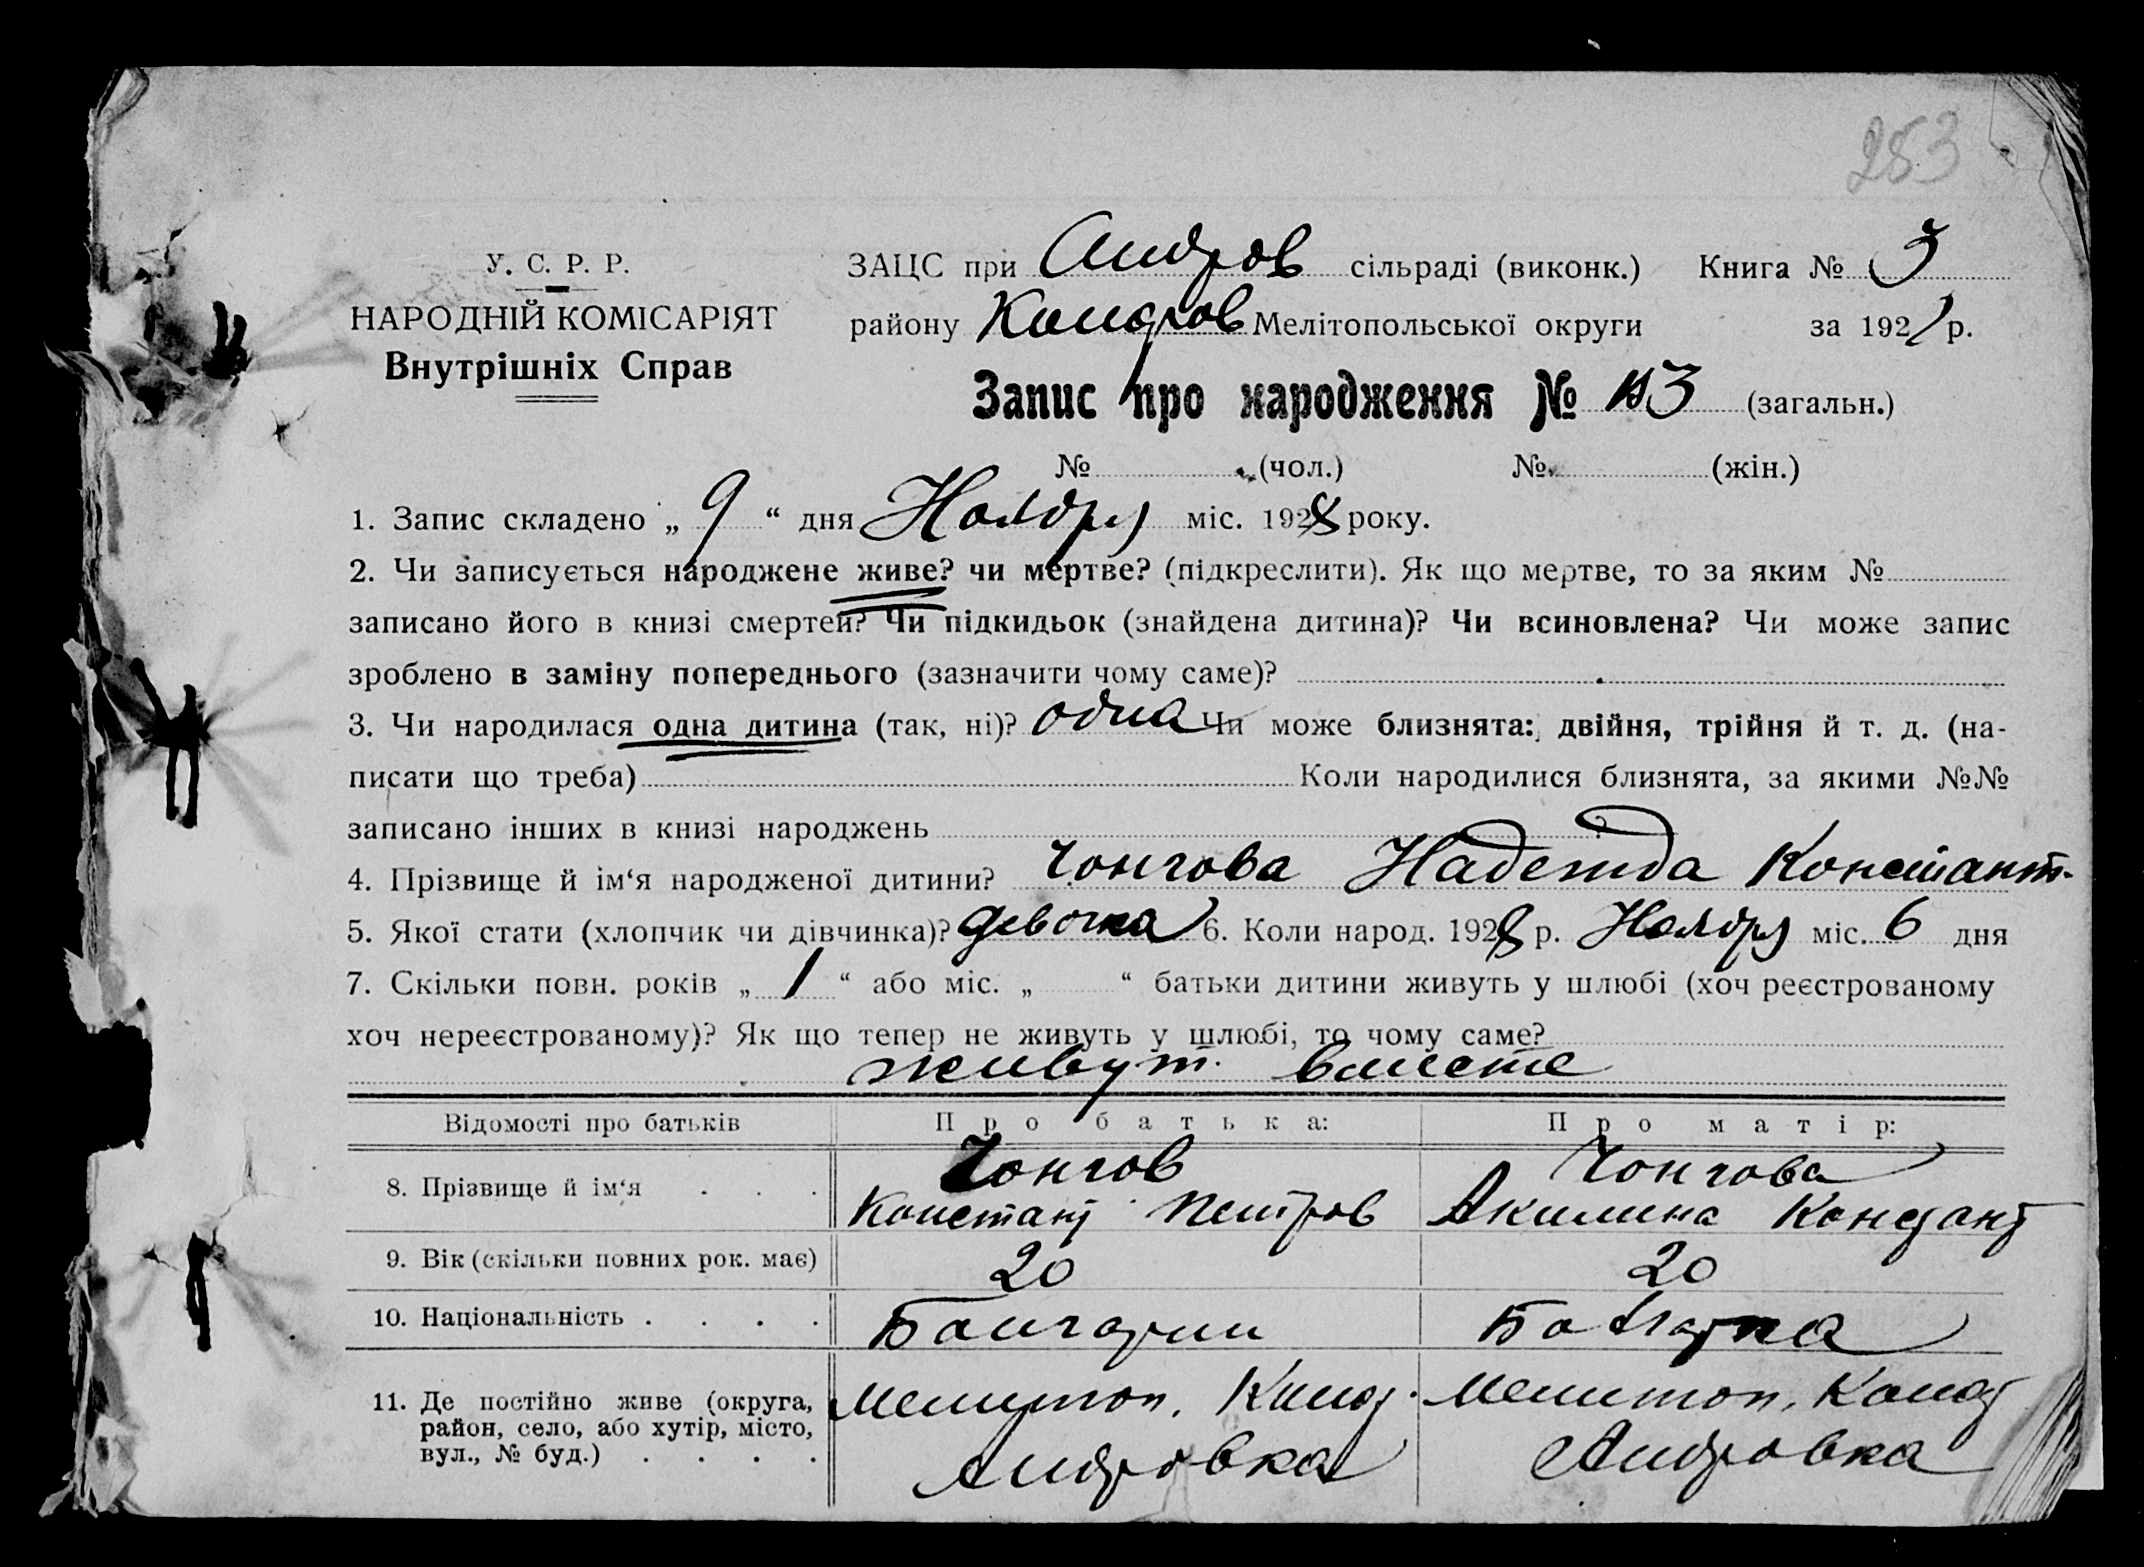 253
У. С. Р. Р.
НАРОДНІЙ КОМІСАРІЯТ
Внутрішніх Справ
ЗАЦС при Андров сільраді (виконк.) Книга № 3
району Мелітопольської округи за 192 р.
Запис про народження № (загальн.)
№ (чол.) № (жін.)
1. Запис складено „ 9 “ дня Ноября міс. 1928 року.
2. Чи записується народжене живе? чи мертве? (підкреслити). Як що мертве, то за яким №
записано його в книзі смертей? Чи підкидьок (знайдена дитина)? Чи всиновлена? Чи може запис
зроблено в заміну попереднього (зазначити чому саме)?
3. Чи народилася одна дитина (так, ні)? одна Чи може близнята: двійня, трійня й т. д. (на-
писати що треба) Коли народилися близнята, за якими №№
записано інших в книзі народжень ?
4. Прізвище й ім‘я народженої дитини? Чонгова Надежда Констант.
5. Якої стати (хлопчик чи дівчинка)? девочка 6. Коли народ. 1928 р. Ноября міс. 6 дня
7. Скільки повн. років „ 1 “ або міс. „ “ батьки дитини живуть у шлюбі (хоч реєстрованому
хоч нереєстрованому)? Як що тепер не живуть у шлюбі, то чому саме?
живут вместе
Відомості про батьків Про батька: Про матір:
8. Прізвище й ім‘я . . . Чонгов Чонгова
Констант Петров Акилина Констант
9. Вік (скільки повних рок. має) 20 20
10. Національність . . . . Болгарин Болгарка
11. Де постійно живе (округа, район, село, або хутір, місто, вул., № буд.) . . . . Мелитоп. Мелитоп.
Андровка Андровка